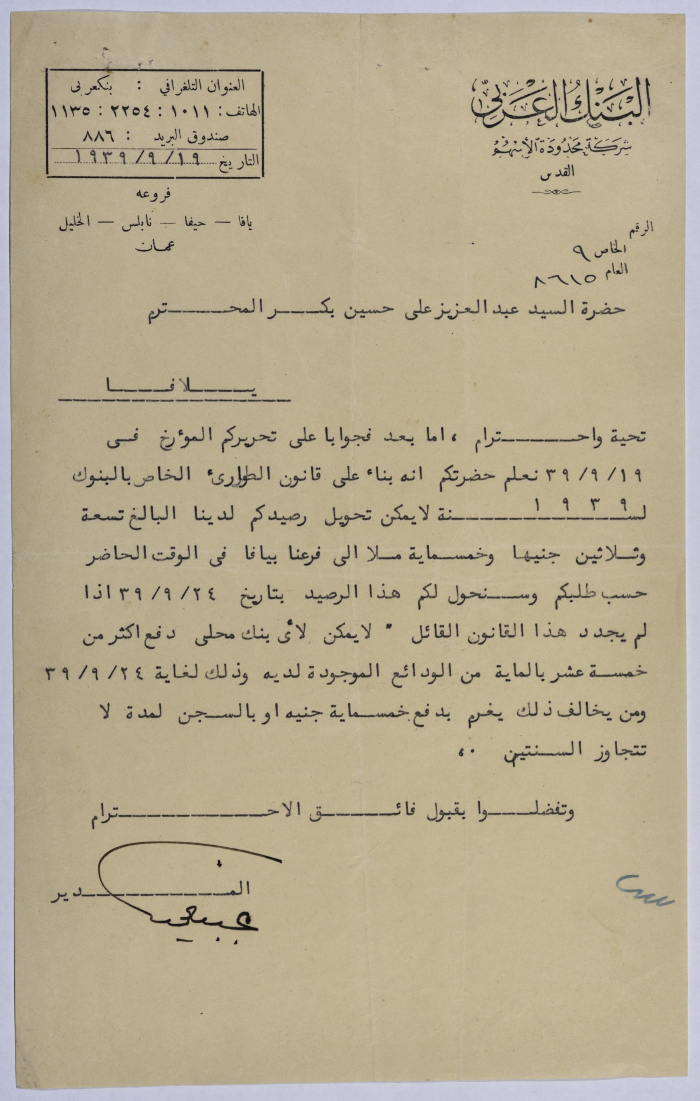 البنك العربي
شركة محدودة الأسهم
القدس
العنوان التلغرافي : بنكعربي
الهاتف : ١٠١١ : ٢٢٥٤ : ١١٣٥
صندوق البريد : ٨٨٦
التاريخ ١٩٣٩/٩/١٩
فروعه
يافا — حيفا — نابلس — الخليل
عمان
الرقم
الخاص ٩
العام ٨٦١٥
حضرة السيد عبد العزيز على حسين بكـر المحـترم
يـلافـا
تحية واحـترام ، اما بعد فجوابا على تحريركم المؤرخ فى
٣٩/٩/١٩ نعلم حضرتكم انه بناء على قانون الطوارئ الخاص بالبنوك
لسـنة ١٩٣٩ لايمكن تحويل رصيدكم لدينا البالغ تسعة
وثلاثين جنيها وخمسماية مـلا الى فرعنا بيافا فى الوقت الحاضر
حسب طلبكم وسنحول لكم هذا الرصيد بتاريخ ٣٩/٩/٢٤ اذا
لم يجدد هذا القانون القائل " لايمكن لأى بنك محلى دفع اكثر من
خمسة عشر بالماية من الودائع الموجودة لديه وذلك لغاية ٣٩/٩/٢٤
ومن يخالف ذلك يغرم بدفع خمسماية جنيه او بالسجن لمدة لا
تتجاوز السنتين ،.
وتفضلـوا بقبول فائـق الاحـترام
المـدير